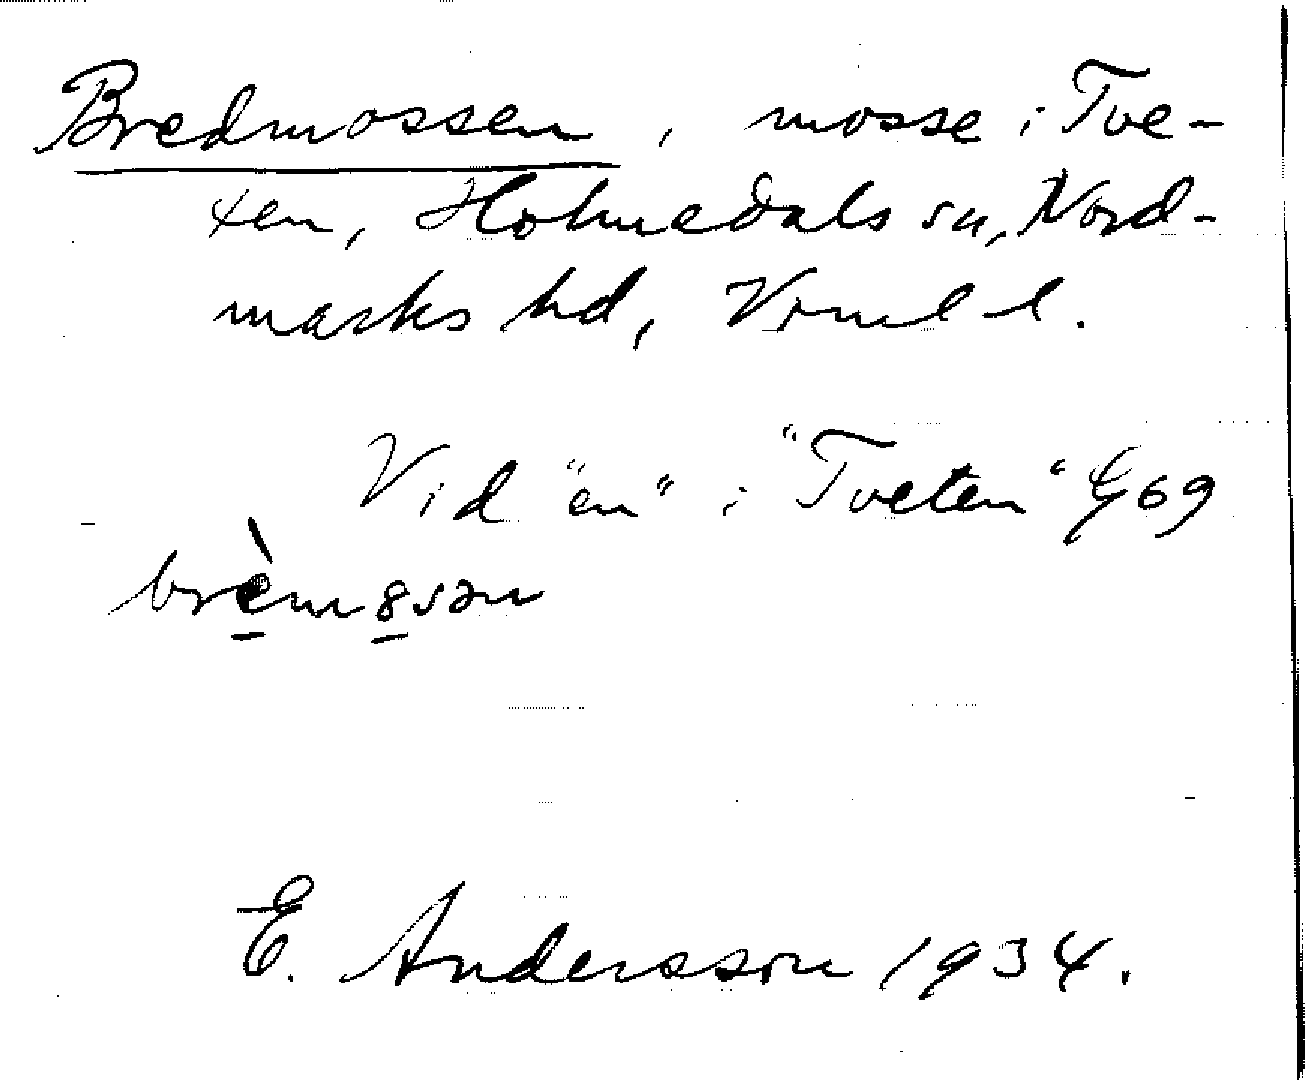 Bredmossen, mosse i Tve-
ten, Holmedals sn, Nord-
marks hd, Vrml l.
Vid "en" i "Tveten" G69
brèm8sən
E. Andersson 1934.